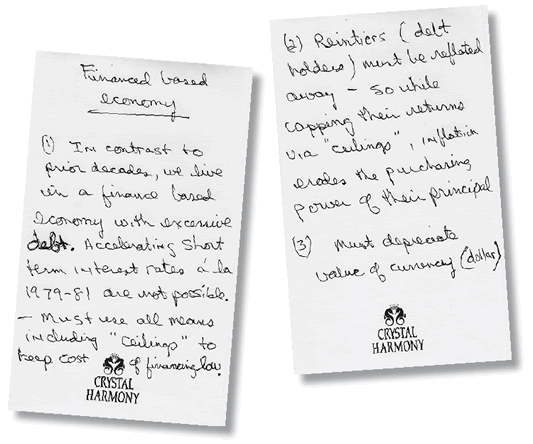 Financed based
economy
(1) In contrast to
prior decades, we live
in a finance based
economy with excessive
debt. Accelerating short
term interest rates á la
1979-81 are not possible.
- Must use all means
including "ceilings" to
keep cost of financing low.
CRYSTAL
HARMONY
(2) Reintiers (debt
holders) must be reflated
away - so while
capping their returns
via "ceilings", inflation
erodes the purchasing
power of their principal
(3) Must depreciate
value of currency (dollar)
CRYSTAL
HARMONY